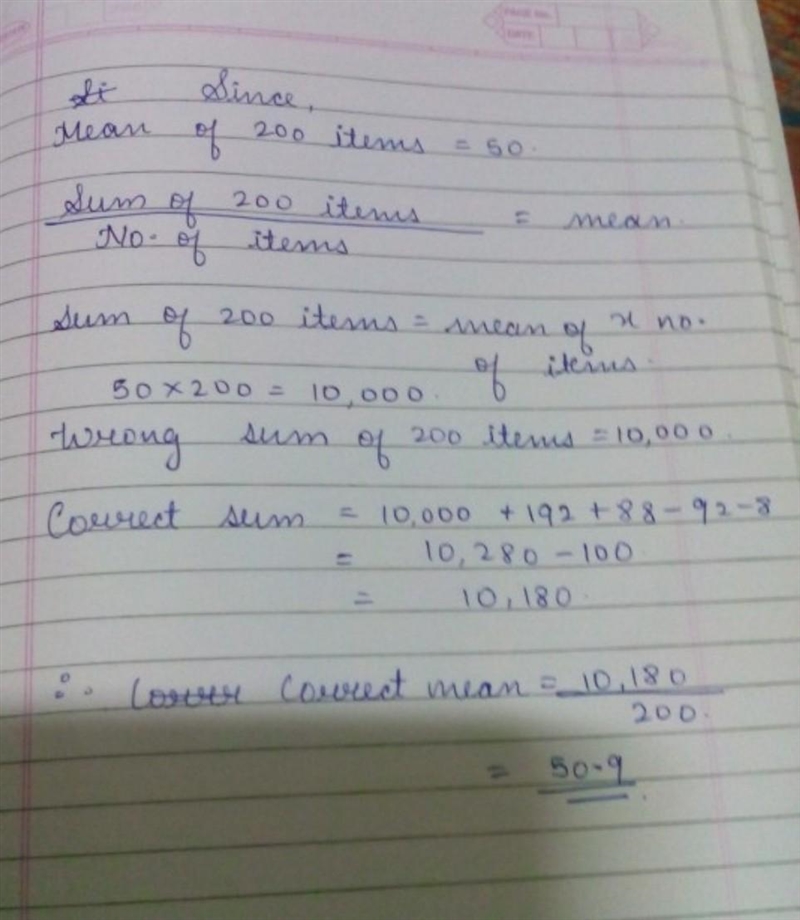 PAGE NO.
DATE
Since,
Mean of 200 items = 50.
Sum of 200 items = mean.
No. of items
Sum of 200 items = mean of x no.
of items.
50 × 200 = 10,000.
Wrong sum of 200 items = 10,000.
Correct sum = 10,000 + 192 + 88 - 92 - 8
= 10,280 - 100
= 10,180.
∴ Correct mean = 10,180
200.
= 50.9.